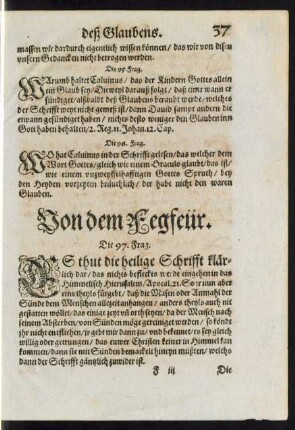 deß Glaubens. 37
massen wir dardurch eigentlich wissen können / das wir von disen
vnsern Gedancken nicht betrogen werden.
Die 95. Frag.
WArumb haltet Caluinus / das der Kindern Gottes allein
ein Glaub sey / Dieweyl darauß folgt / daß einer wann er
sündiget / alßbald deß Glaubens beraubt werde / welches
der Schrifft weyt nicht gemeß ist / dann Dauid sampt andern die
etwann gesündiget haben / nichts desto weniger den Glauben inn
Gott haben behalten / 2. Reg. 11. Johan. 12. Cap.
Die 96. Frag.
WO hat Caluinus in der Schrifft gelesen / das welcher dem
Wort Gottes / gleich wie einem Oraculo glaubt / das ist /
wie einem vnzweyffelhafftigen Gottes Spruch / bey
den Heyden vorzeyten bräuchlich / der habe nicht den waren
Glauben.
Von dem Fegfeür.
Die 97. Frag.
ES thut die heilige Schrifft klär-
lich dar / das nichts beflecktes werde eingehen in das
Himmelisch Hierusalem / Apocal. 21. So er nun aber
eins theyls fürgebt / daß die Masen oder Anmahl der
Sünde dem Menschen alzeyt anhangen / anders theyls auch nit
gestatten wöllet / das einige zeyt vñ orth seyen / da der Mensch nach
seinem Absterben / von Sünden möge gereiniget werden / so könde
jhr nicht entfliehen / jr gebt mir dann zu / vnd bekennet / es sey gleich
willig oder gettrungen / das euwer Christen keiner in Himmel kan
kommen / dann sie mit Sünden bemackelt hineyn müßten / welchs
dann der Schrifft gäntzlich zuwider ist.
F iij Die